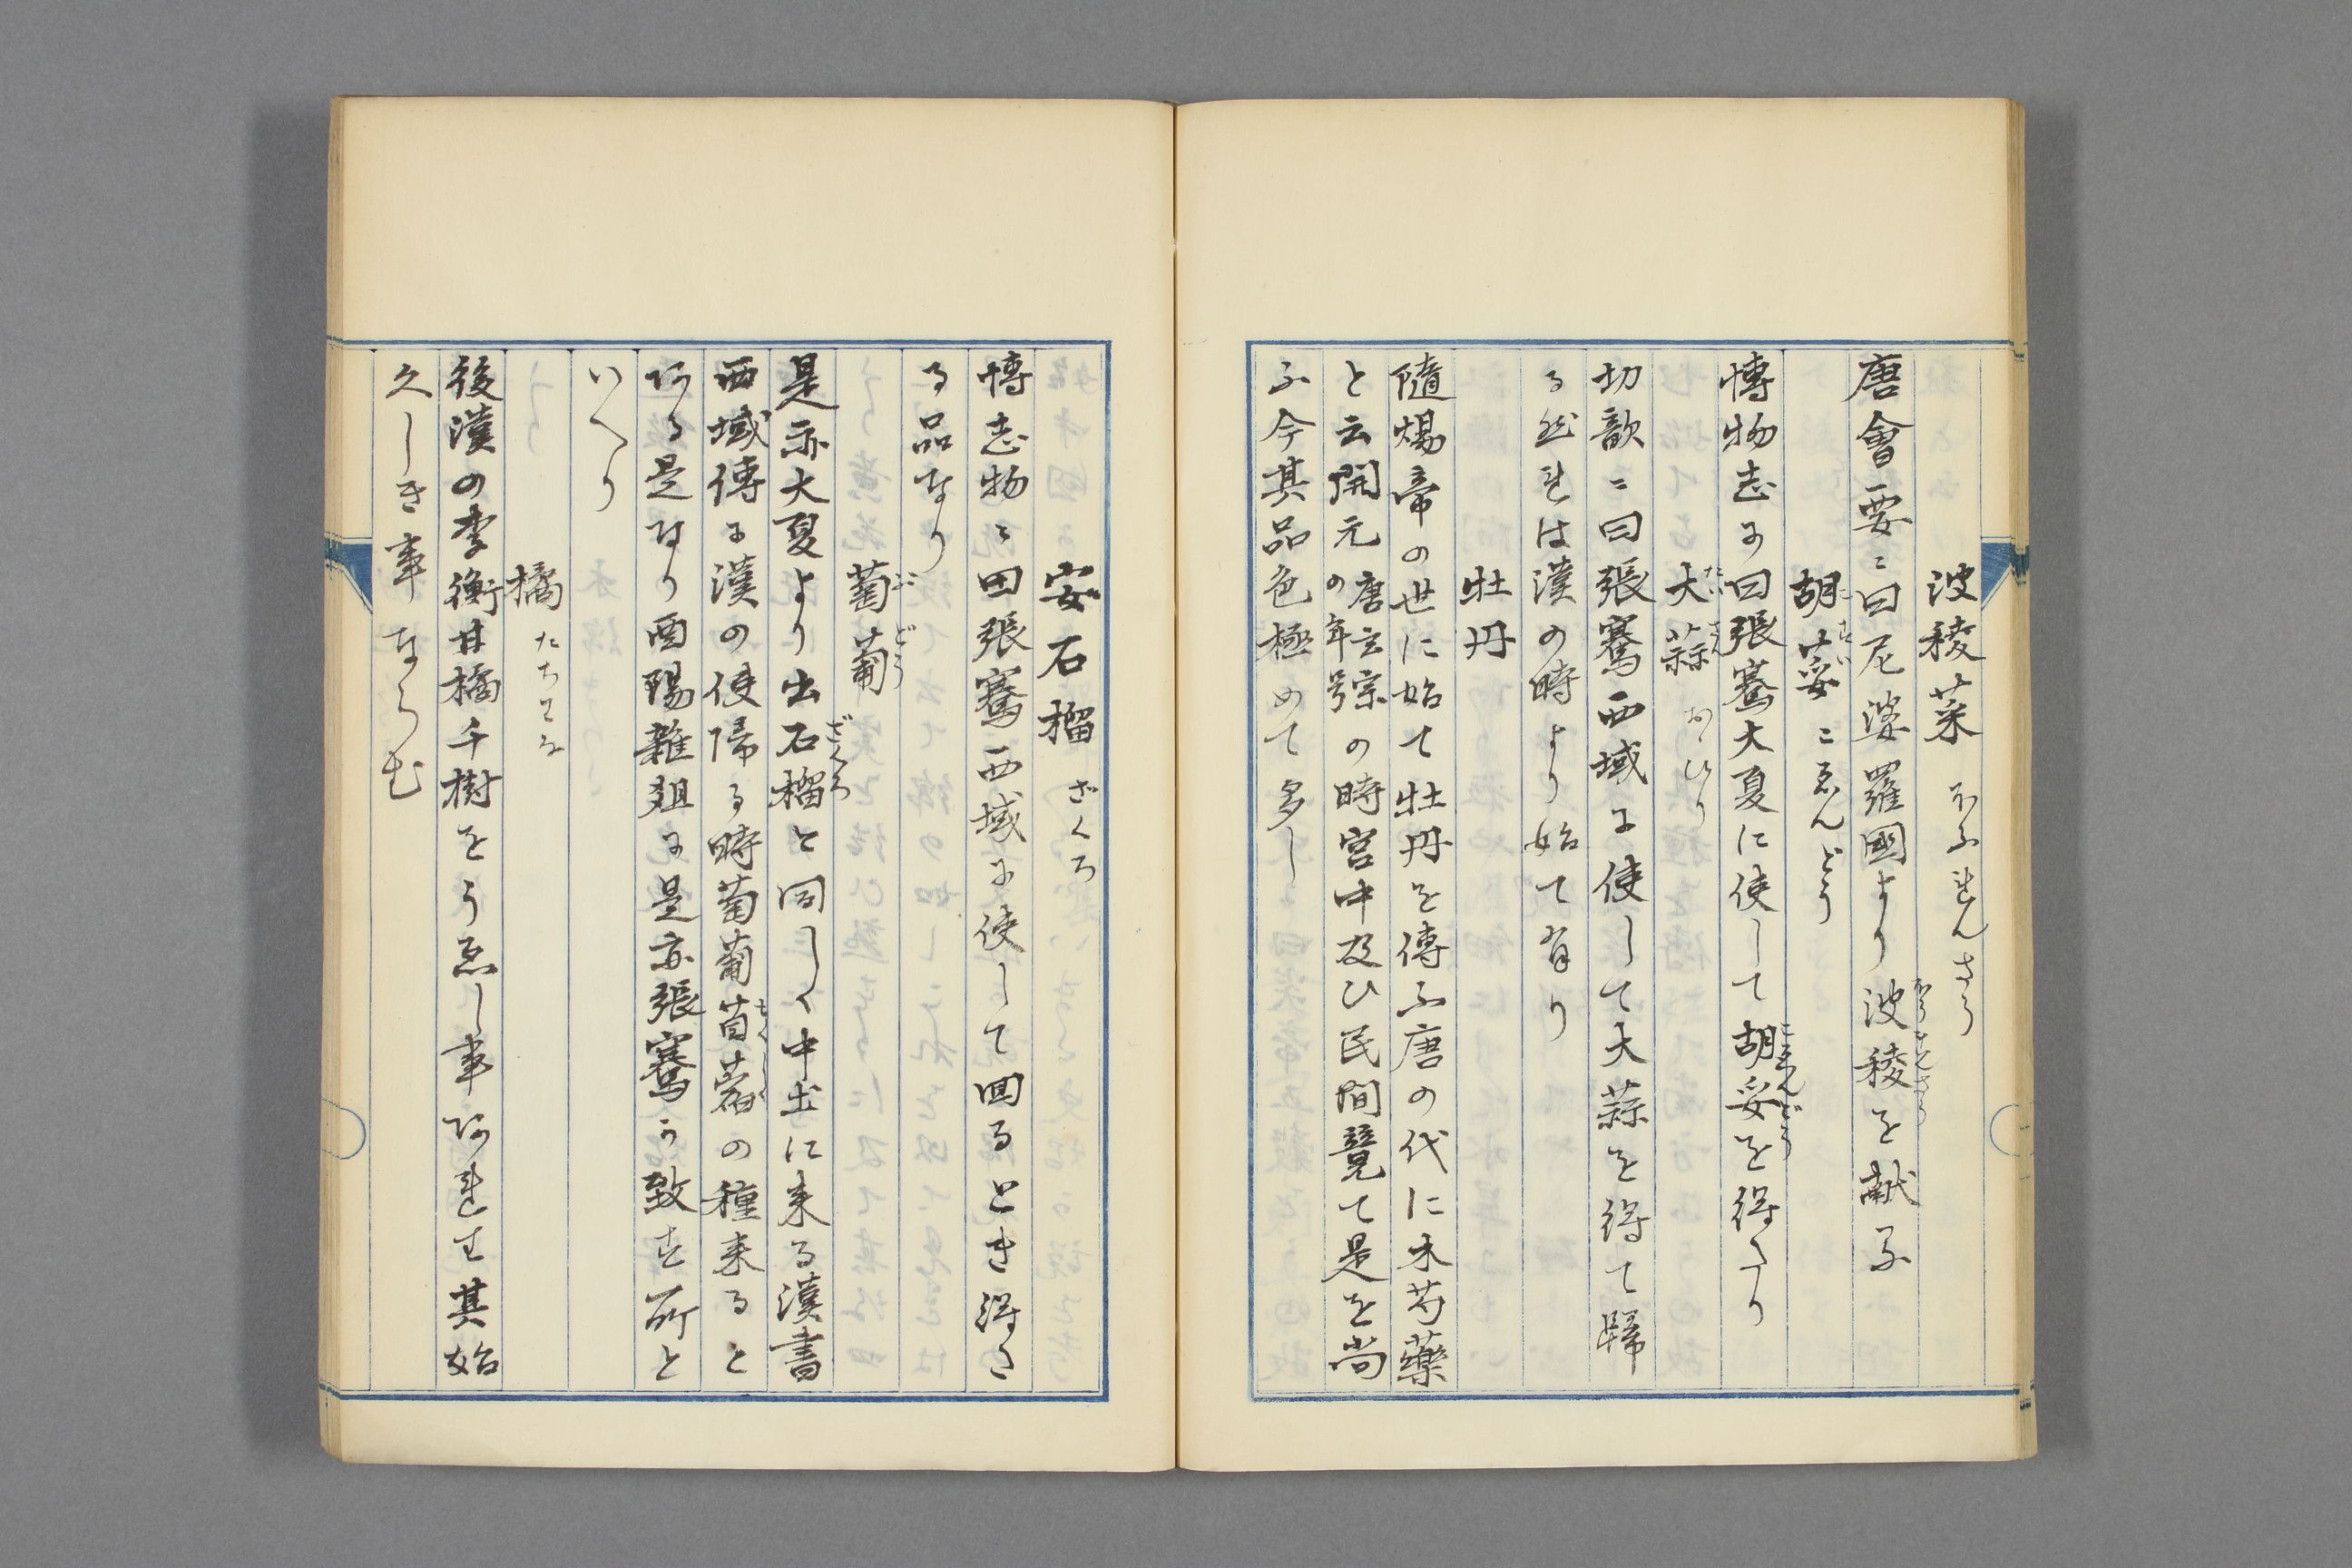 波稜菜 ほふれんさう
唐會要ニ曰尼婆羅國より波稜を献ス
胡荽 こゑんどう
博物志に曰張騫大夏に使して胡荽を得たり
大蒜 おひり
切韻ニ曰張騫西域に使して大蒜を得て歸
る然れは漢の時より始て有り
牡丹
隨煬帝の世に始て牡丹を傳ふ唐の代に木芍藥
と云開元唐玄宗の年号の時宮中及ひ民間競て是を尚
ふ今其品色極めて多し
安石榴 ざくろ
博志物ニ曰張騫西域に使して囬るとき得た
る品なり
葡萄
是亦大夏より出石榴と同しく中土に来る漢書
西域傳に漢の使帰る時葡萄苜蓿の種来ると
ある是なり酉陽雜俎に是亦張騫か致す所と
いへり
橘 たちはな
後漢の李衡甘橘千樹をうゑし事あれは其始
久しき事ならむ